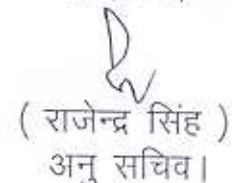 ( राजेन्द्र सिंह )
अनु सचिव।